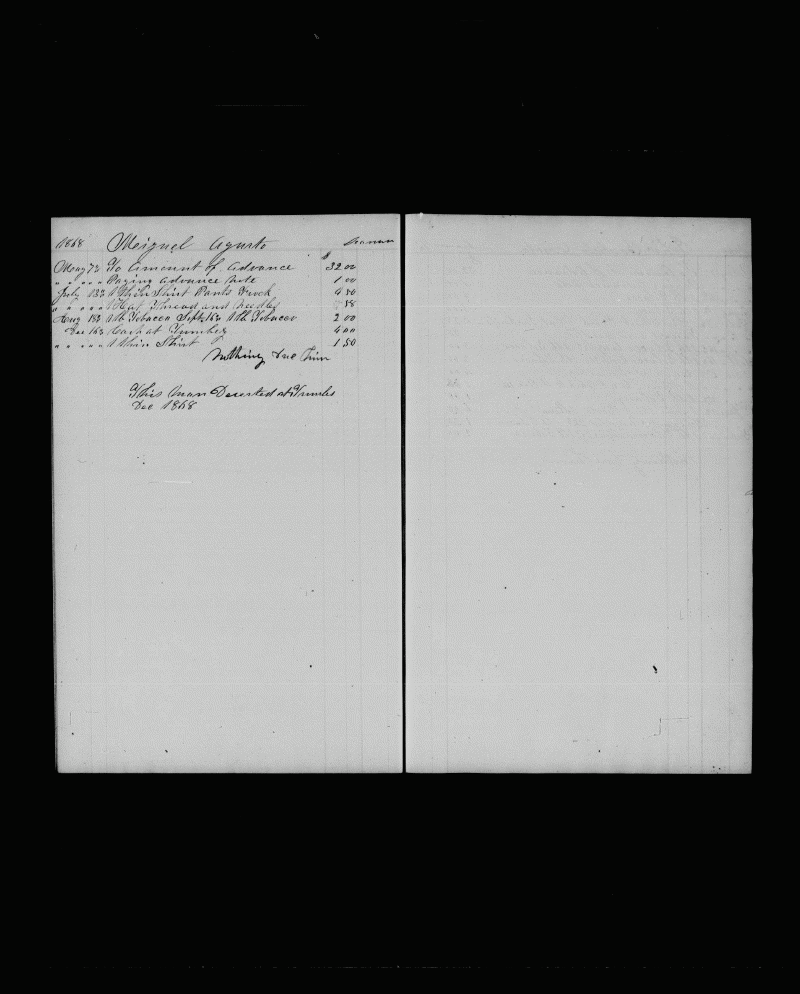 1868 Meiguel Agusto Seaman
May 7th To Amount of Advance $32 00
" " " " Paying Advance Note 1 00
July 18th 1 Thin Shirt Pants Frock 4 50
" " " " 1 Hat Thread and Needles 58
Aug 18th 1 lb Tobacco Sept 16th 1 lb Tobacco 2 00
Dec 16th Cash at Tumbes 4 00
" " " " 1 Thin Shirt 1 50
Nothing Due Him
This Man Deserted at Tumbes
Dec 1868